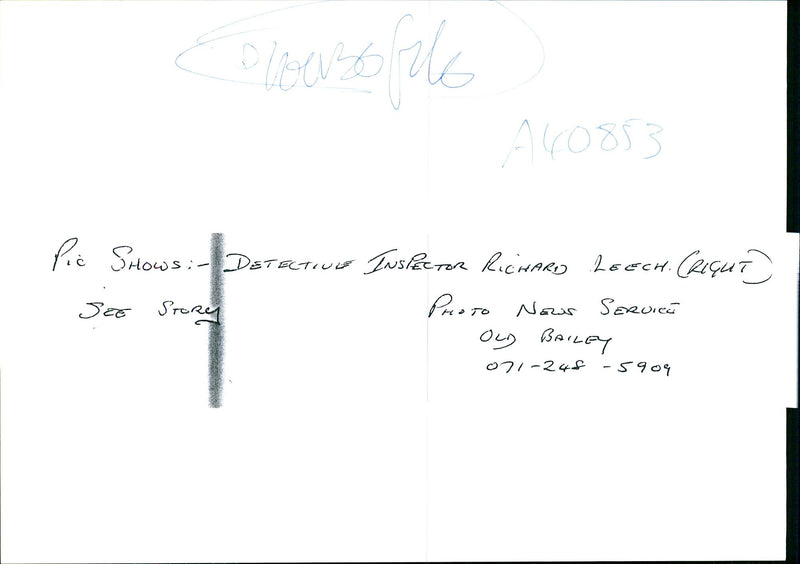 A40853
Pic Shows:- Detective Inspector Richard Leech. (Right)
See Story
Photo News Service
Old Bailey
071-248-5909